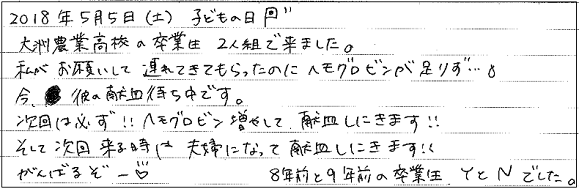 2018年5月5日(土) 子どもの日
大洲農業高校の卒業生 2人組で来ました。
私がお願いして 連れてきてもらったのにヘモグロビンが足りず…
今、彼の献血待ち中です。
次回は必ず!! ヘモグロビン増やして 献血しにきます!!
そして次回来る時は 夫婦になって献血しにきます!!
がんばるぞー♡ 8年前と9年前の卒業生 YとNでした。